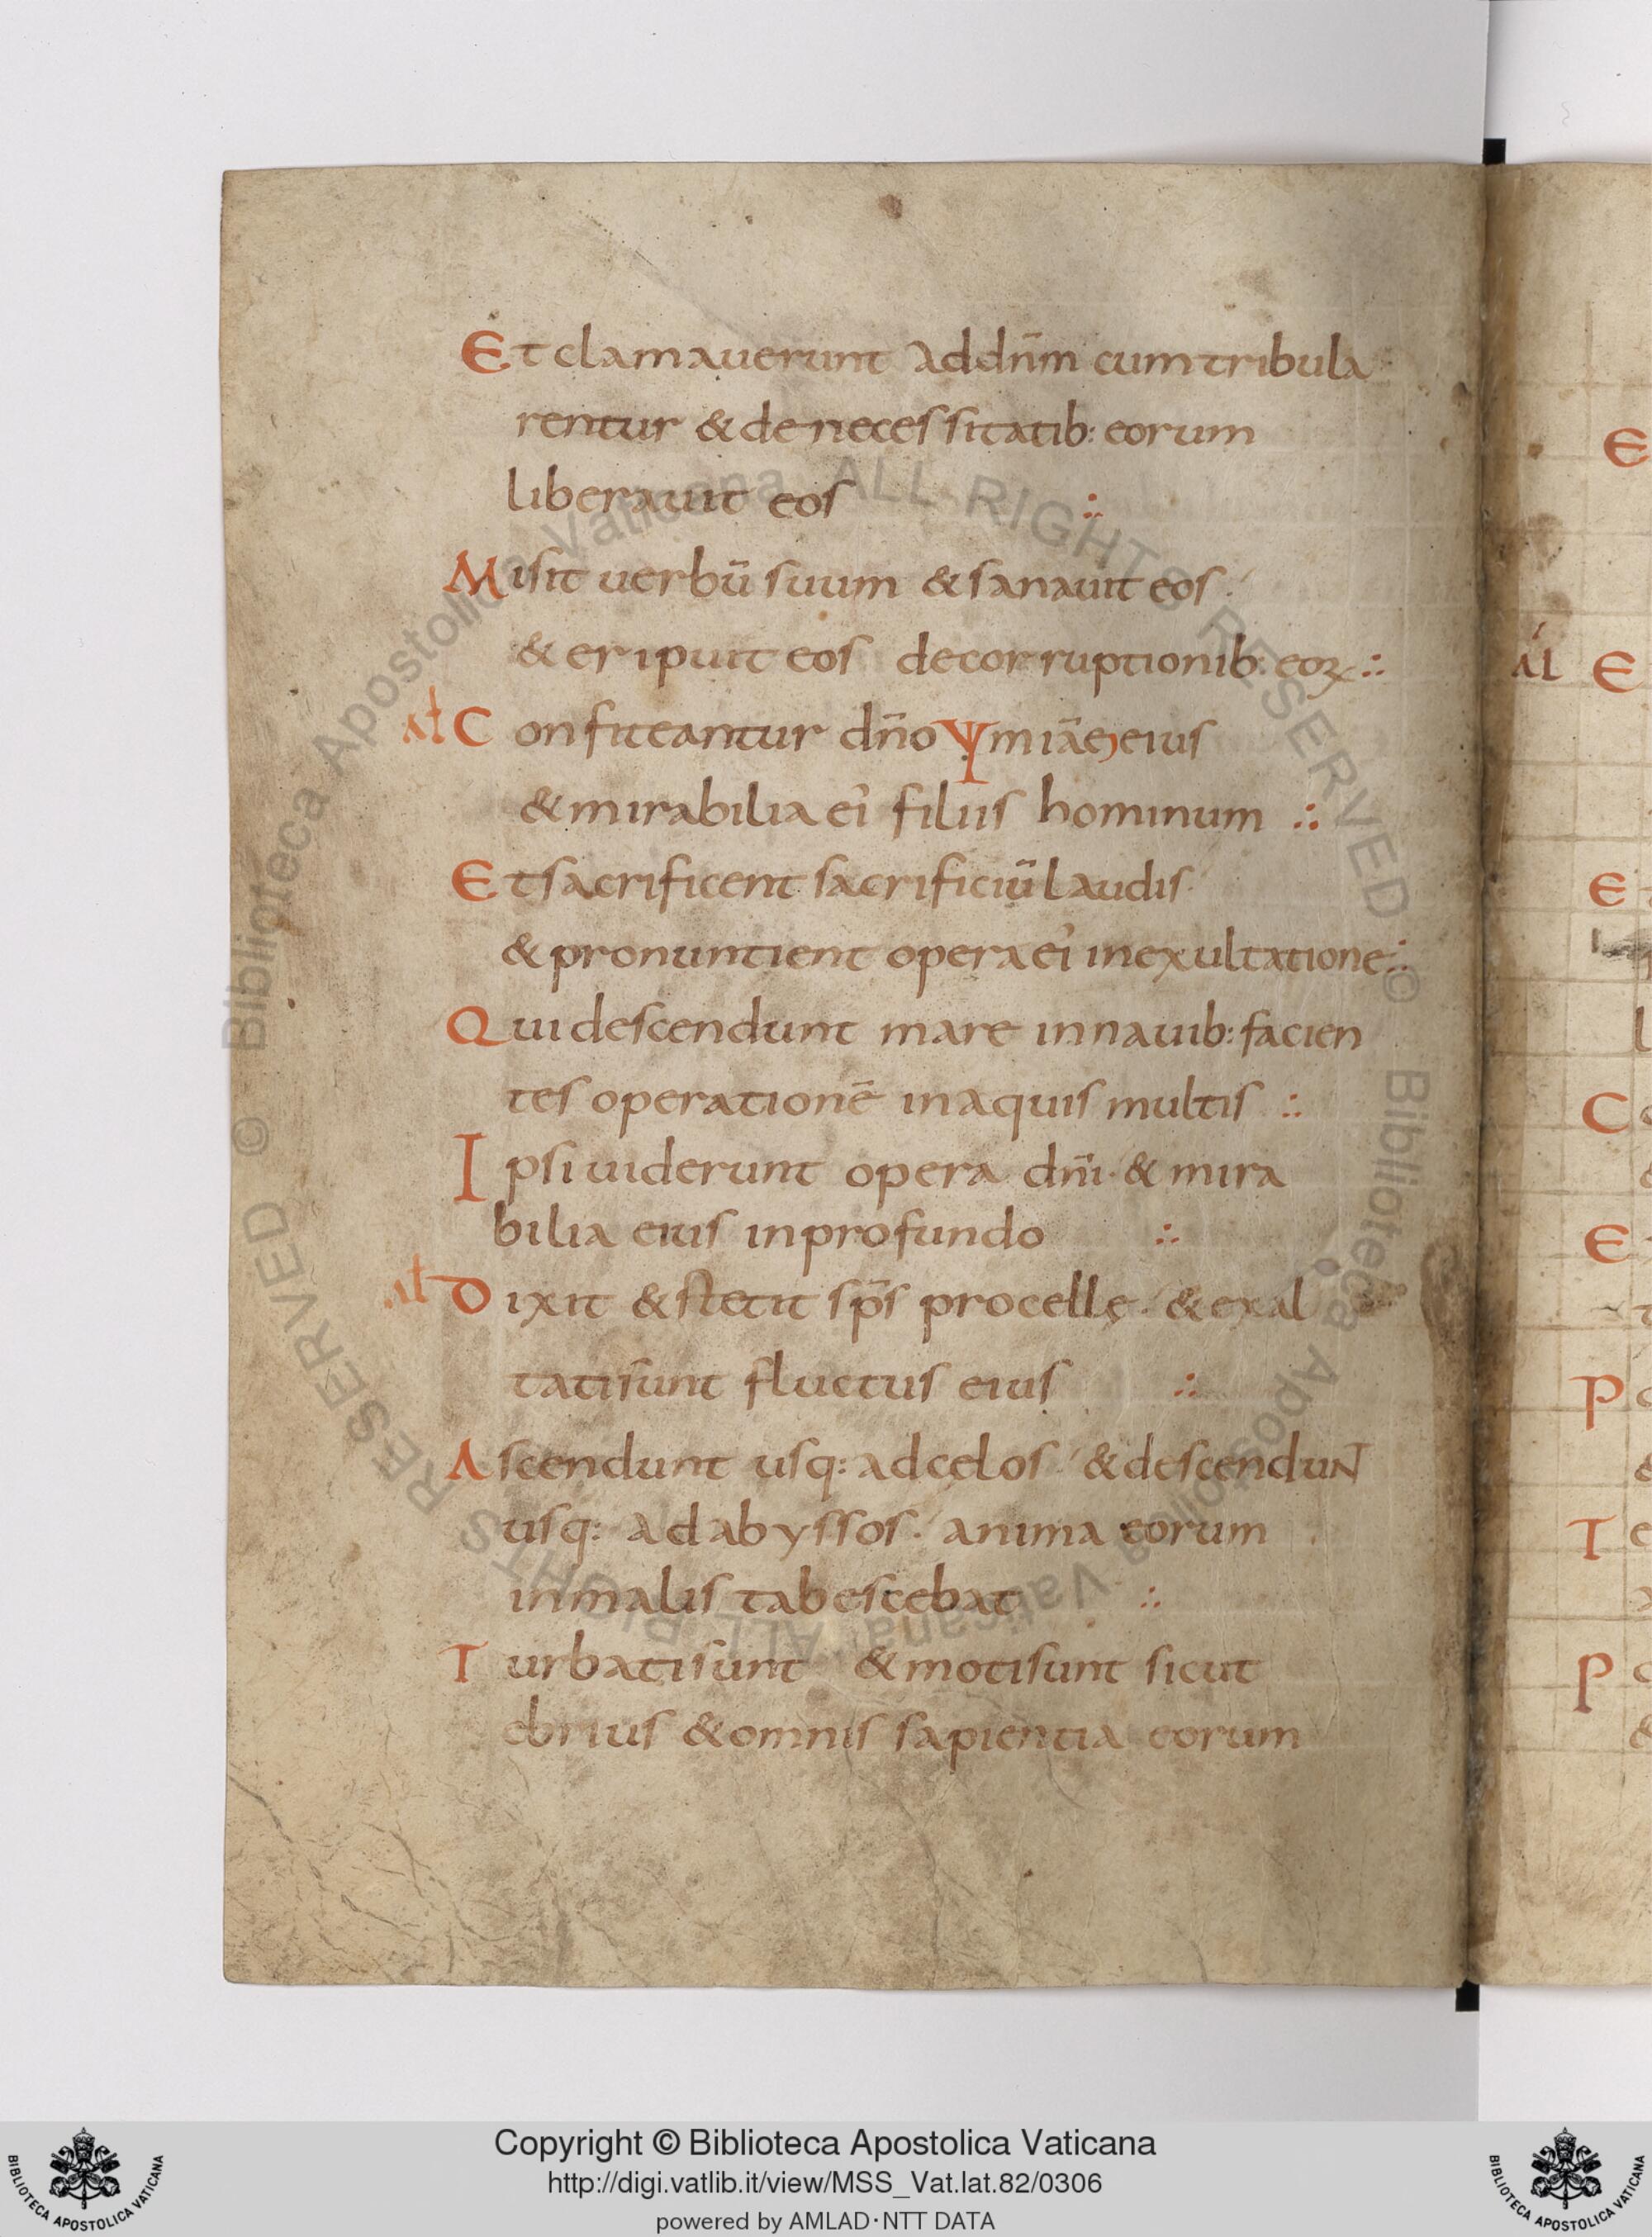 Et clamauerunt ad dn̄m cum tribula
rentur & de necessitatib: eorum
liberauit eos ∴
Misit uerbū suum & sanauit eos·
& eripuit eos de corruptionib: eoꝝ ∴
aƚ Confiteantur dn̄o Ψ miāę eius
& mirabilia ei' filiis hominum ∴
Et sacrificent sacrificiū laudis·
& pronuntient opera ei' in exultatione ∴
Qui descendunt mare in nauib: facien
tes operationē in aquis multis ∴
Ipsi uiderunt opera dn̄i· & mira
bilia eius in profundo ∴
aƚ Dixit & stetit sp̄s procellę· & exal
tati sunt fluctus eius ∴
Ascendunt usq: ad celos· & descendunt
usq: ad abyssos· anima eorum
in malis tabescebat ∴
Turbati sunt & moti sunt sicut
ebrius & omnis sapientia eorum
E
al E
E
l
C
E
P
T
P
© Biblioteca Apostolica Vaticana ALL RIGHTS RESERVED © Biblioteca Apostolica Vaticana ALL RIGHTS RESERVED
BIBLIOTECA APOSTOLICA VATICANA
Copyright © Biblioteca Apostolica Vaticana
http://digi.vatlib.it/view/MSS_Vat.lat.82/0306
powered by AMLAD·NTT DATA
BIBLIOTECA APOSTOLICA VATICANA